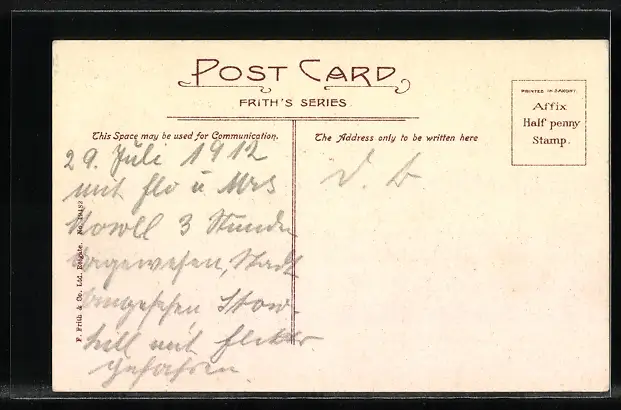 POST CARD
FRITH'S SERIES
PRINTED IN SAXONY.
Affix
Half penny
Stamp.
This Space may be used for Communication.
The Address only to be written here
29. Juli 1912
mit Flo u Mrs
3 Stunden
dagewesen, Stadt
angesehen,
hill mit
gefahren.
F. Frith & Co. Ltd. Reigate. No.